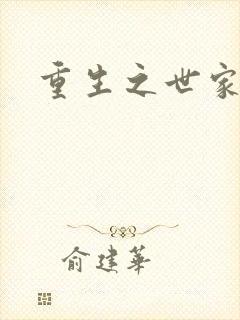 重生之世家
俞建华